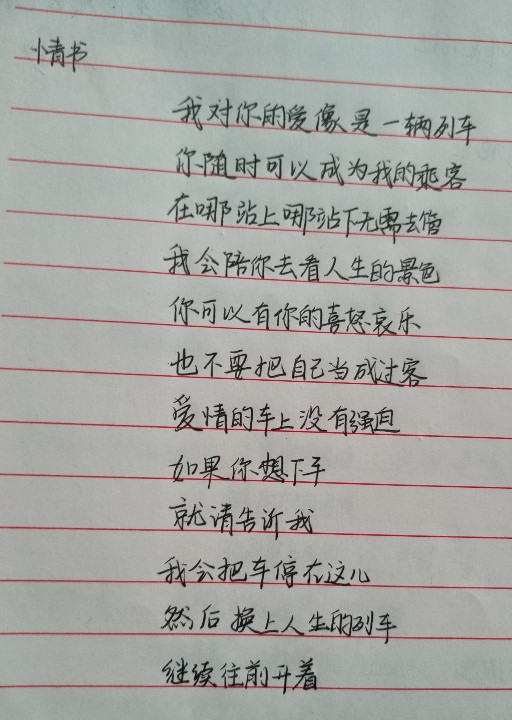 情书
我对你的爱像是一辆列车
你随时可以成为我的乘客
在哪站上哪站下无需去管
我会陪你去看人生的景色
你可以有你的喜怒哀乐
也不要把自己当成过客
爱情的车上没有强迫
如果你想下车
就请告诉我
我会把车停在这儿
然后换上人生的列车
继续往前开着